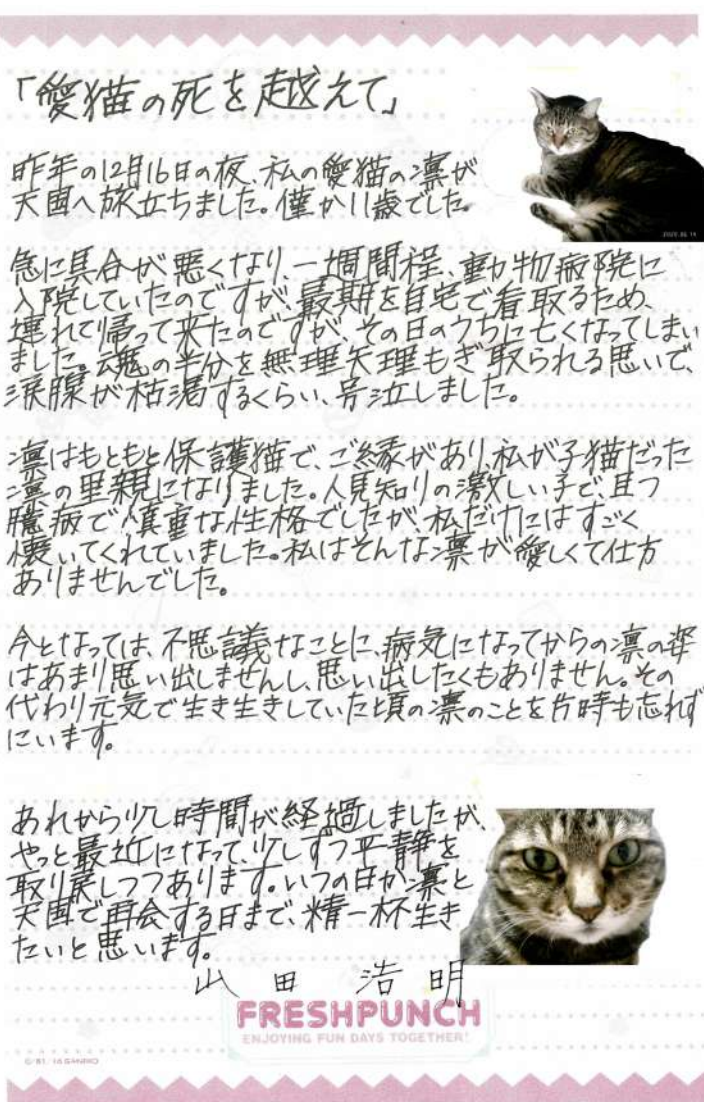 「愛猫の死を越えて」
昨年の12月16日の夜、私の愛猫の凛が
天国へ旅立ちました。僅か11歳でした。
急に具合が悪くなり、一週間程、動物病院に
入院していたのですが、最期を自宅で看取るため、
連れて帰って来たのですが、その日のうちに亡くなってしまい
ました。魂の半分を無理矢理もぎ取られる思いで、
涙腺が枯渇するくらい、号泣しました。
凛はもともと保護猫で、ご縁があり、私が子猫だった
凛の里親になりました。人見知りの激しい子で、且つ
臆病で慎重な性格でしたが、私だけにはすごく
懐いてくれていました。私はそんな凛が愛しくて仕方
ありませんでした。
今となっては、不思議なことに、病気になってからの凛の姿
はあまり思い出しませんし、思い出したくもありません。その
代わり元気で生き生きしていた頃の凛のことを片時も忘れず
にいます。
あれから少し時間が経過しましたが、
やっと最近になって、少しずつ平静を
取り戻しつつあります。いつの日か凛と
天国で再会する日まで、精一杯生き
たいと思います。
山田 浩明
FRESHPUNCH
ENJOYING FUN DAYS TOGETHER!